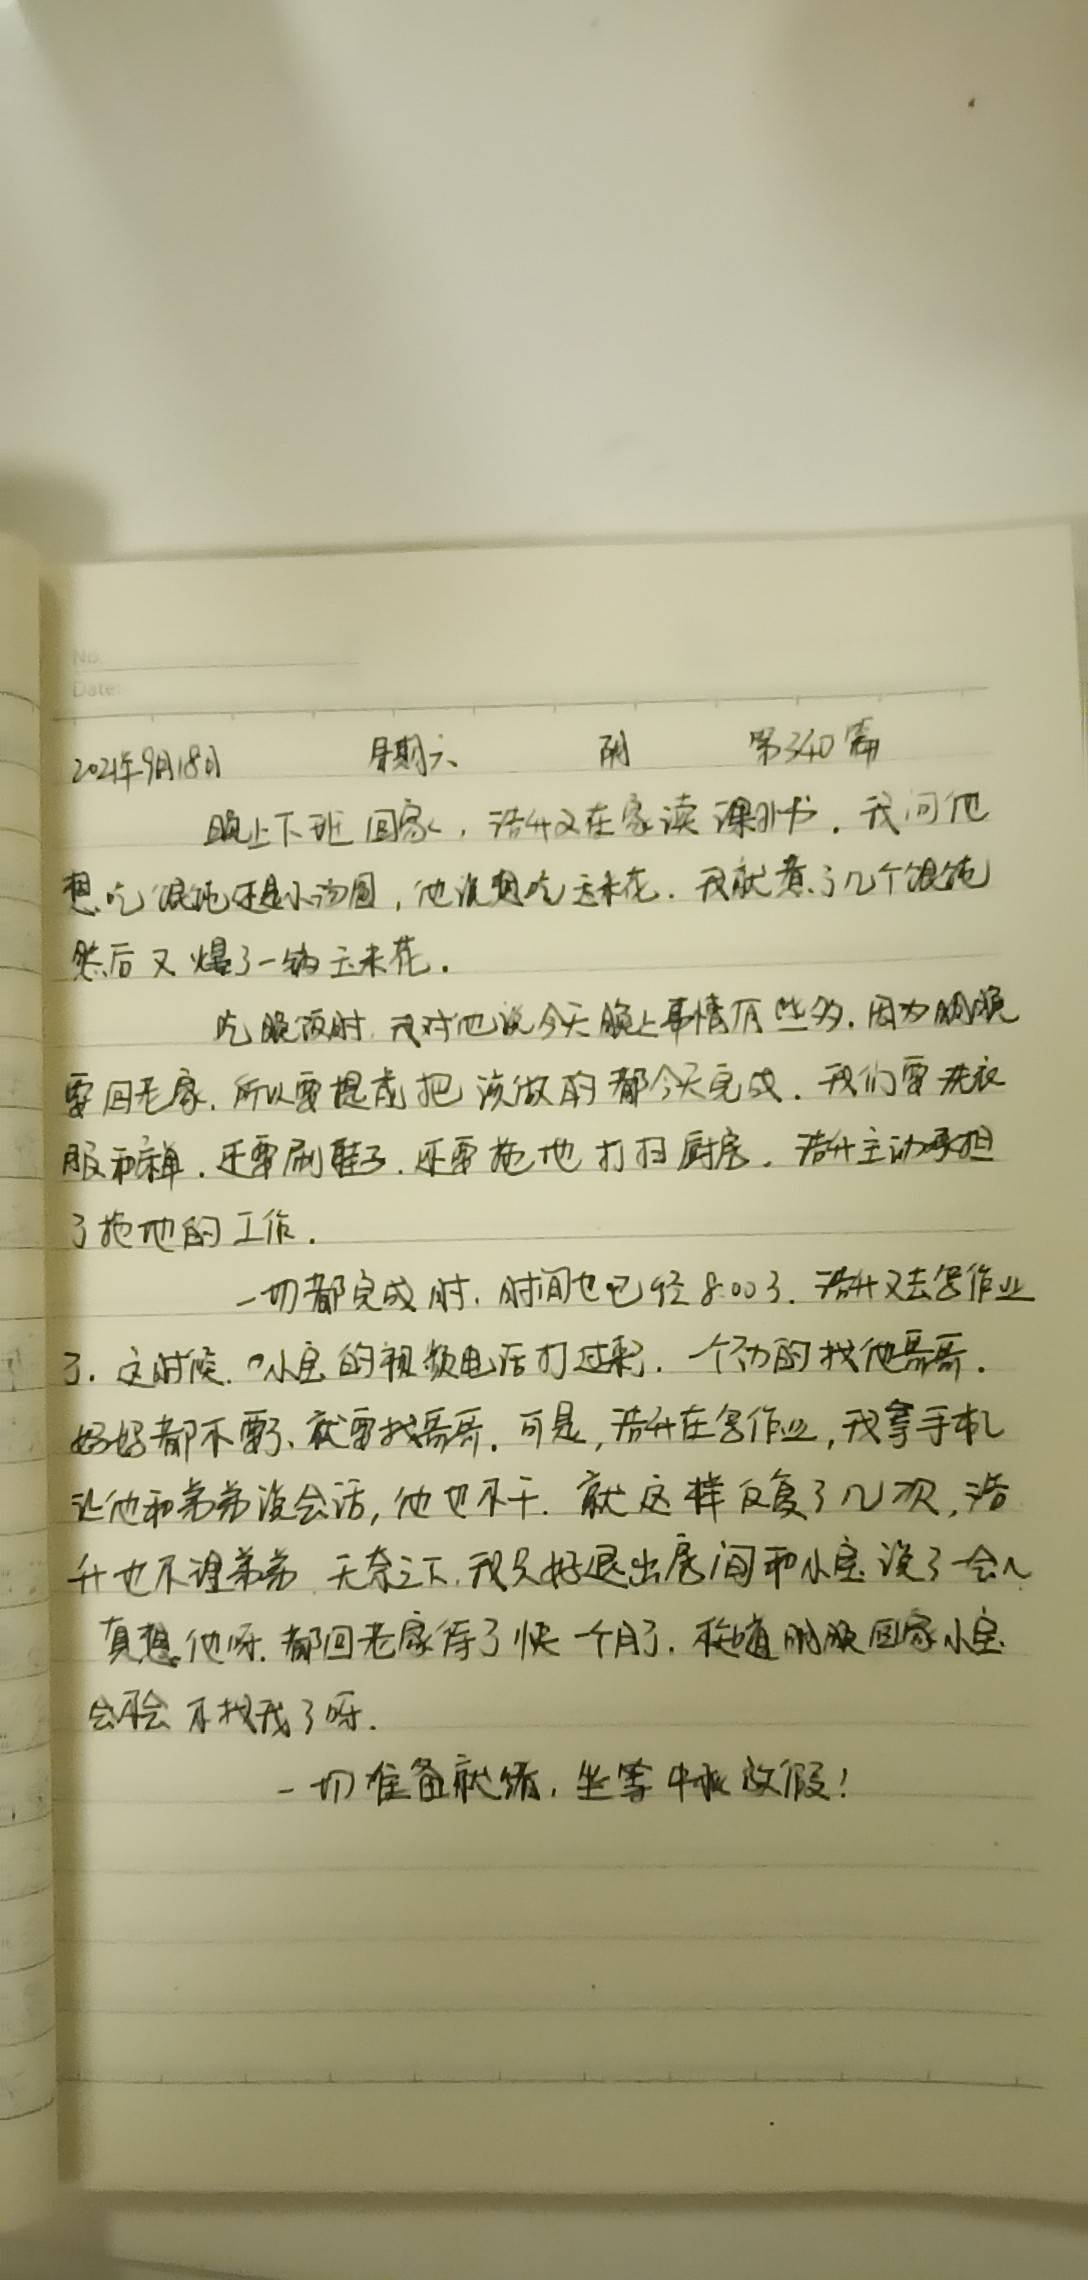 No.
Date:
2021年9月18日 星期六 阴 第340篇
晚上下班回家，浩升又在家读课外书。我问他
想吃馄饨还是小汤圆，他说想吃玉米花。我就煮了几个馄饨
然后又爆了一锅玉米花。
吃晚饭时，我对他说今天晚上事情有些多，因为明晚
要回老家，所以要提前把该做的都今天完成。我们要洗衣
服和床单，还要刷鞋子，还要拖地打扫厨房。浩升主动承担
了拖地的工作。
一切都完成时，时间也已经8:00了。浩升又去写作业
了。这时候，小宝的视频电话打过来，一个劲的找他哥哥。
妈妈都不要了、就要找哥哥。可是，浩升在写作业，我拿手机
让他和弟弟说会话，他也不干。就这样反复了几次，浩
升也不理弟弟，无奈之下，我只好退出房间和小宝说了一会儿
真想他呀，都回老家待了快一个月了，知道明晚回家小宝
会不会不找我了呀。
一切准备就绪，坐等中秋放假！